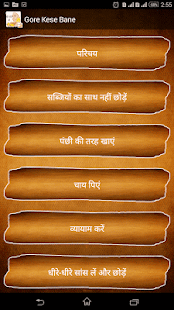 2:55
Gore Kese Bane
परिचय
सब्जियों का साथ नहीं छोड़ें
पंछी की तरह खाएं
चाय पिएं
व्यायाम करें
धीरे-धीरे सांस लें और छोड़ें